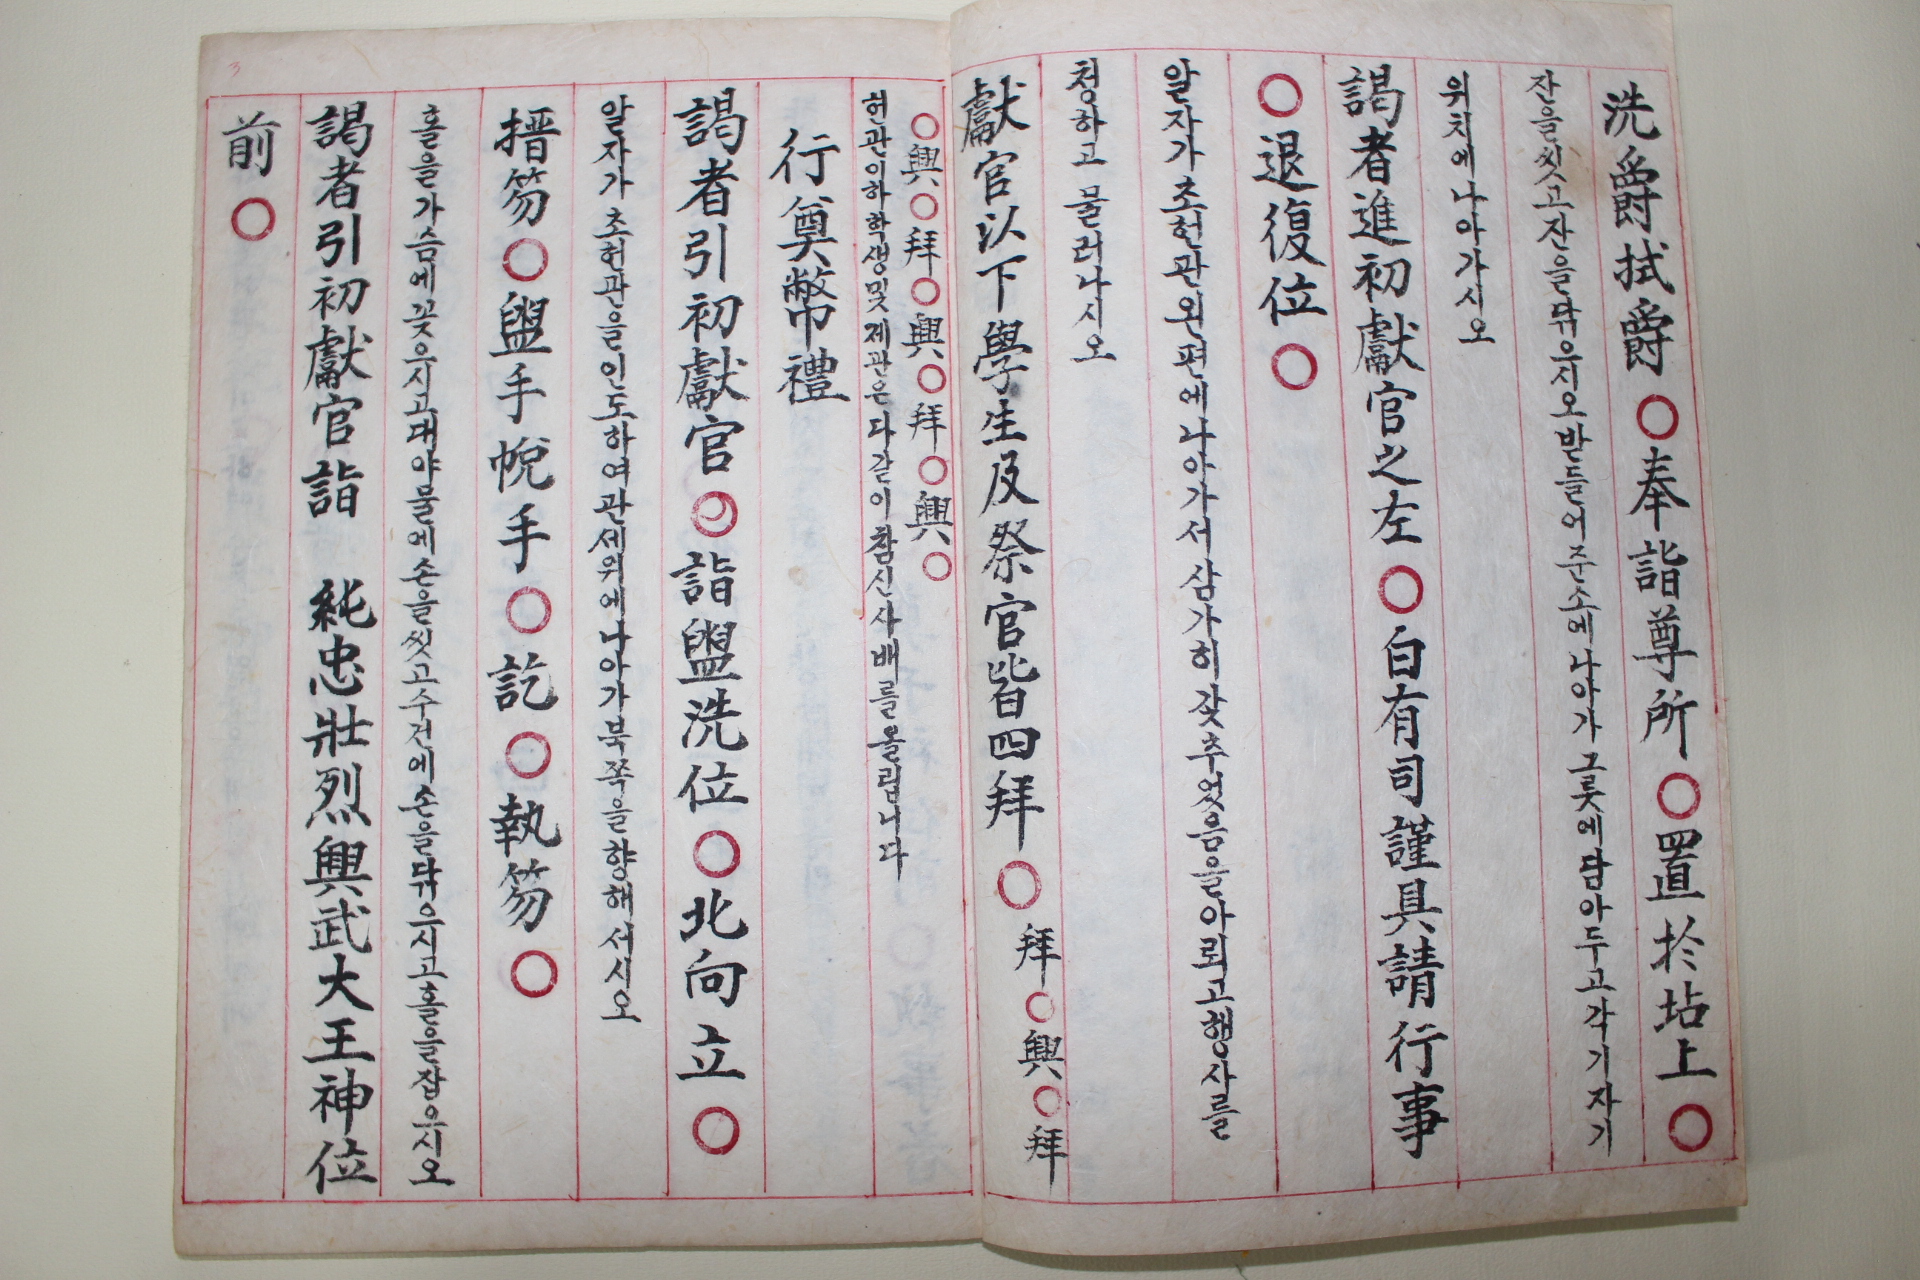 洗爵拭爵○奉詣尊所○置於坫上○
잔을씻고잔을닦으시오받들어준소에나아가그릇에담아두고각기자기
위치에나아가시오
謁者進初獻官之左○白有司謹具請行事
○退復位○
알자가초헌관왼편에나아가서삼가히갖추었음을아뢰고행사를
청하고물러나시오
獻官以下學生及祭官皆四拜○拜○興○拜
○興○拜○興○拜○興○
헌관이하학생및제관은다같이참신사배를올립니다
行奠幣禮
謁者引初獻官○詣盥洗位○北向立○
알자가초헌관을인도하여관세위에나아가북쪽을향해서시오
搢笏○盥手帨手○訖○執笏○
홀을가슴에꽂으시고대야물에손을씻고수건에손을닦으시고홀을잡으시오
謁者引初獻官詣 純忠壯烈興武大王神位
前○
3